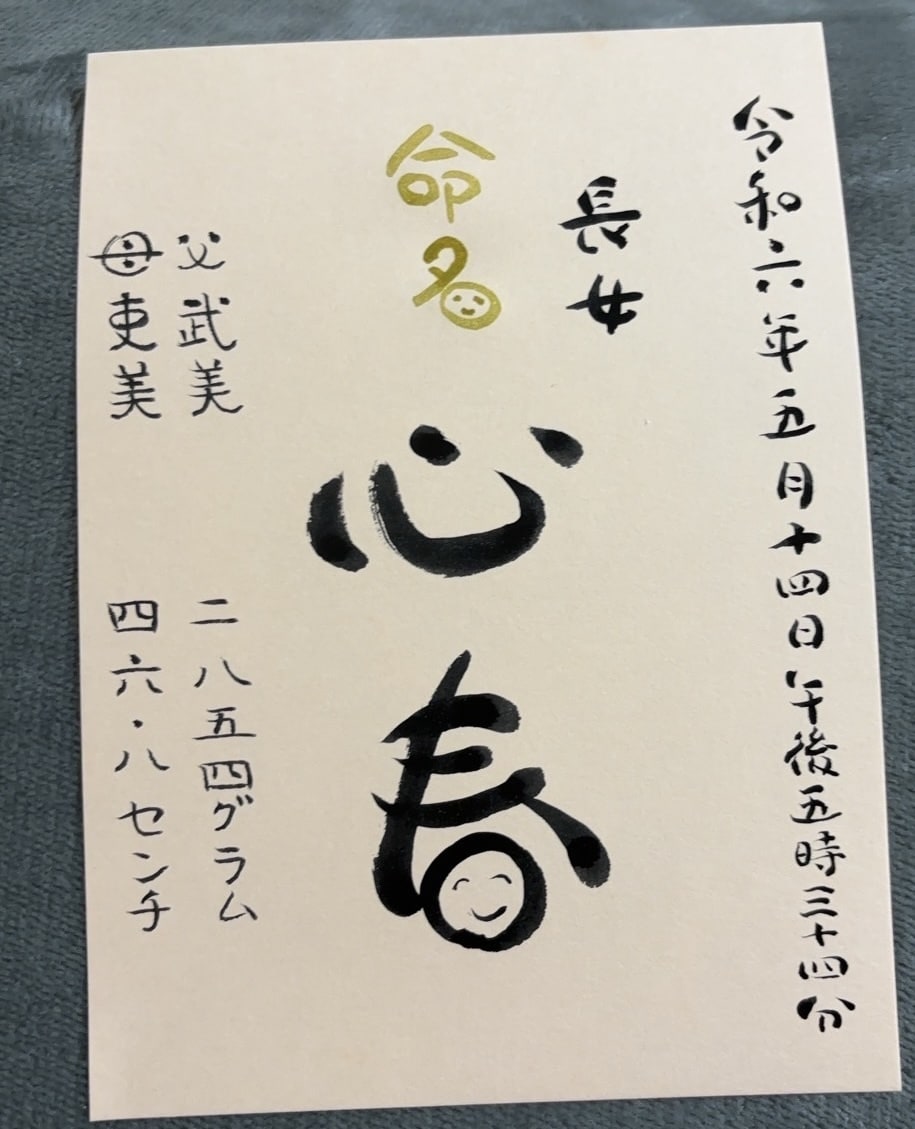 令和六年五月十四日午後五時三十四分
長女
命名
心春
父武美
母吏美
二八五四グラム
四六・八センチ